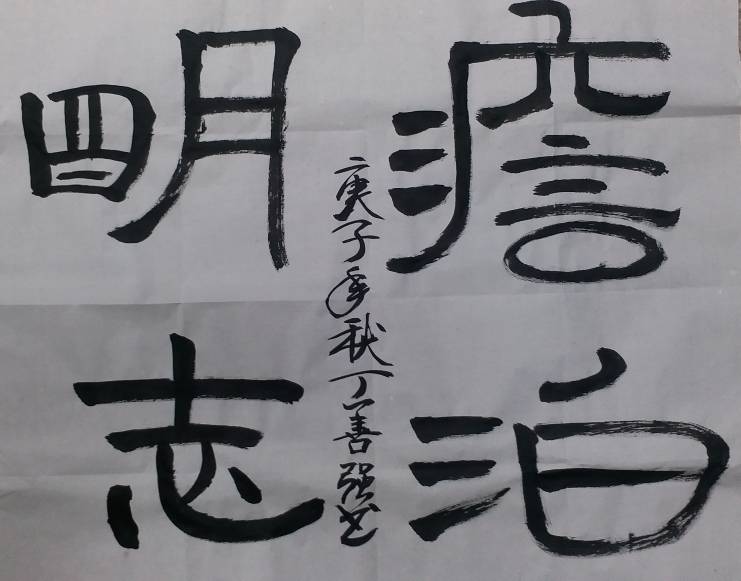 澹泊
明志
庚子年秋丁善强书